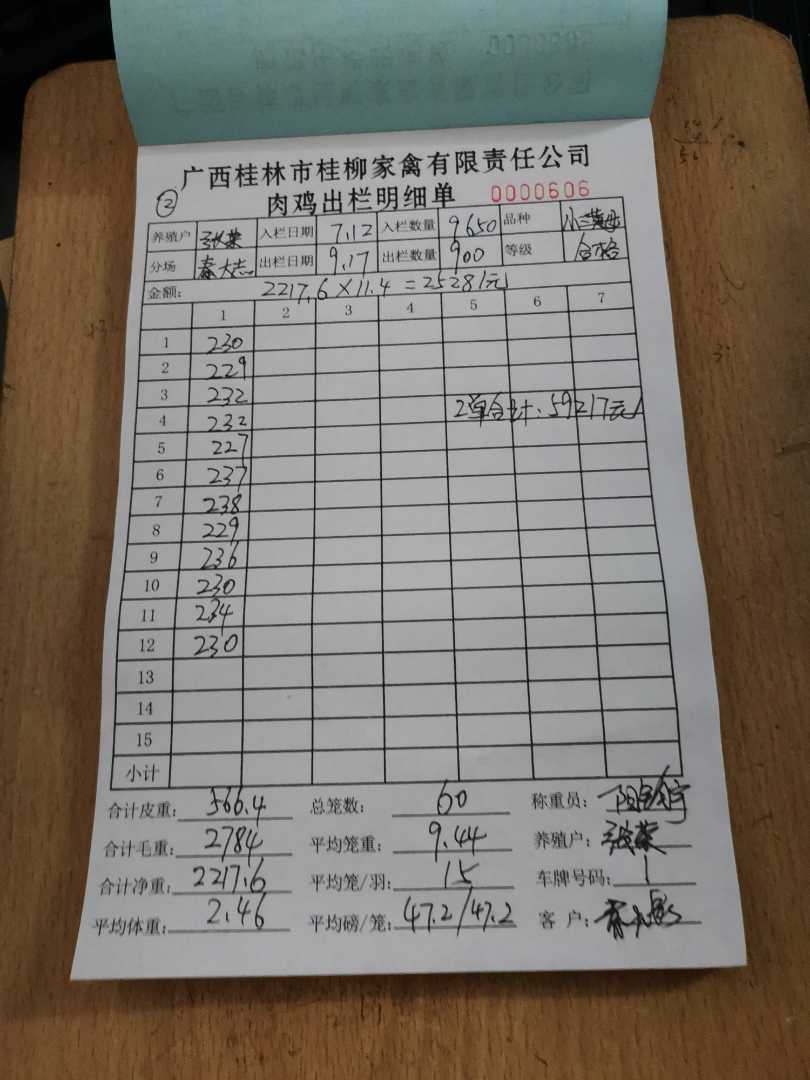 广西桂林市桂柳家禽有限责任公司
② 肉鸡出栏明细单 0000606
养殖户 张荣 入栏日期 7.12 入栏数量 9650 品种 小三黄母
分场 秦大志 出栏日期 9.17 出栏数量 900 等级 合格
金额: 2217.6×11.4=25281元
1 2 3 4 5 6 7
1 230
2 229
3 232
4 232 2单合计:59217元
5 227
6 237
7 238
8 229
9 236
10 230
11 234
12 230
13
14
15
小计
合计皮重: 566.4 总笼数: 60 称重员:
合计毛重: 2784 平均笼重: 9.44 养殖户: 张荣
合计净重: 2217.6 平均笼/羽: 15 车牌号码: 1
平均体重: 2.46 平均磅/笼: 47.2/47.2 客户: